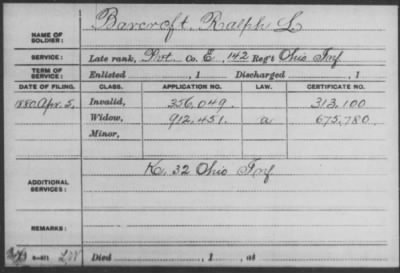 NAME OF SOLDIER: Barcroft, Ralph L
SERVICE: Late rank, Pvt Co. E, 142 Reg't Ohio Inf
TERM OF SERVICE: Enlisted , 1 Discharged , 1
DATE OF FILING. CLASS. APPLICATION NO. LAW. CERTIFICATE NO.
1880 Apr. 5, Invalid, 356,049. 313,100
Widow, 912,451. a 675,780.
Minor,
ADDITIONAL SERVICES: K. 32 Ohio Inf
REMARKS:
Died , 1 , at